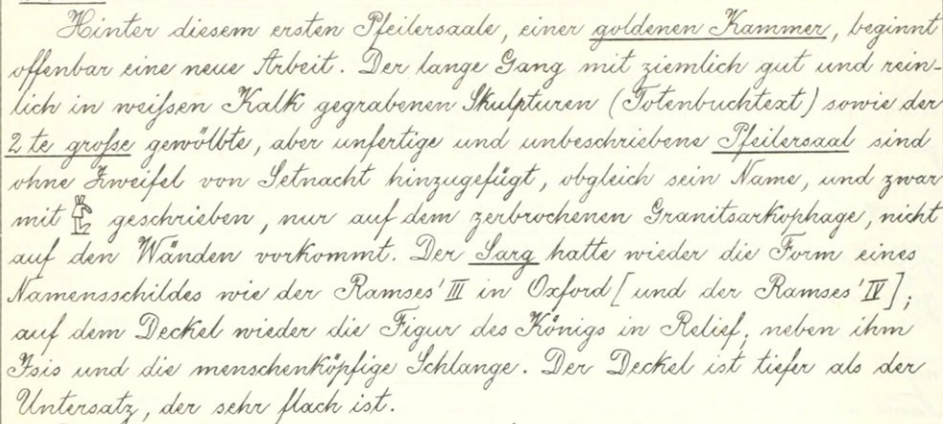 Hinter diesem ersten Pfeilersaale, einer goldenen Kammer, beginnt
offenbar eine neue Arbeit. Der lange Gang mit ziemlich gut und rein-
lich in weißen Kalk gegrabenen Skulpturen (Totenbuchtext) sowie der
2te große gewölbte, aber unfertige und unbeschriebene Pfeilersaal sind
ohne Zweifel von Setnacht hinzugefügt, obgleich sein Name, und zwar
mit 𓁣 geschrieben, nur auf dem zerbrochenen Granitsarkophage, nicht
auf den Wänden vorkommt. Der Sarg hatte wieder die Form eines
Namensschildes wie der Ramses' III in Oxford [und der Ramses' IV];
auf dem Deckel wieder die Figur des Königs in Relief, neben ihm
Isis und die menschenköpfige Schlange. Der Deckel ist tiefer als der
Untersatz, der sehr flach ist.